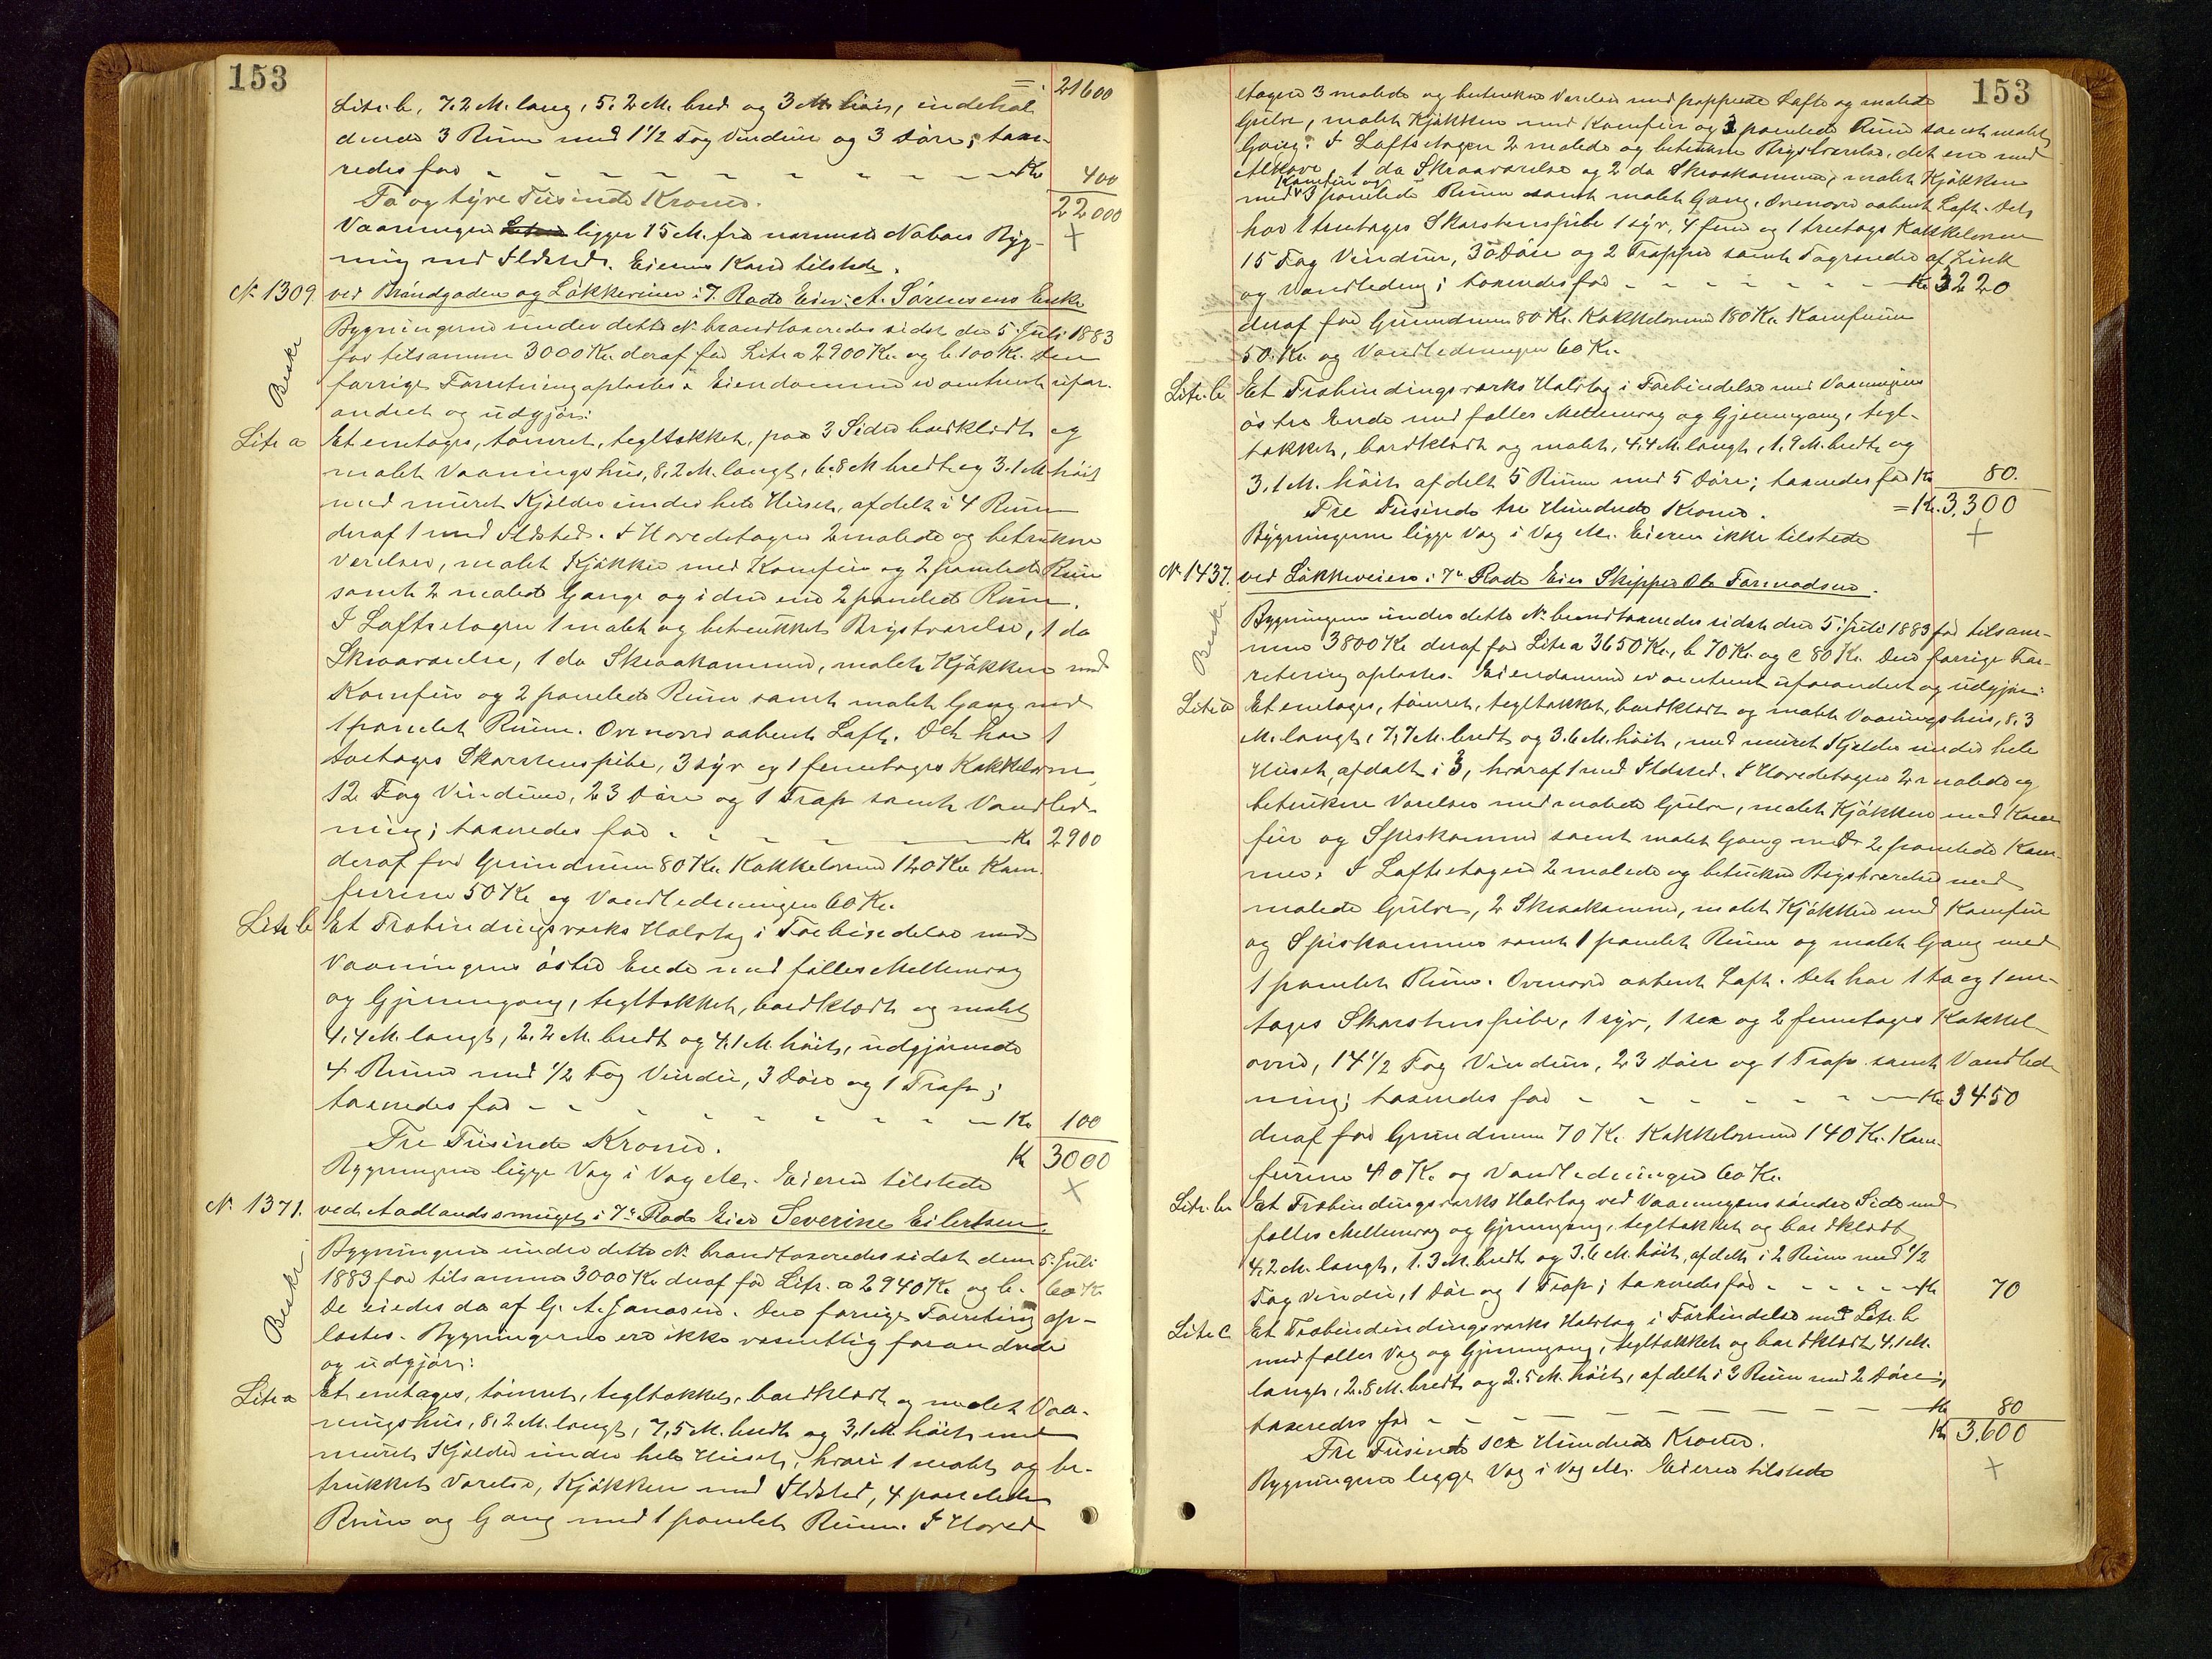 153
= 21600
Litr. b, 7.2 M. lang, 5.2 M. bred og 3 M. høit, indehol-
dende 3 Rum med 1 1/2 Fag Vinduer og 3 Døre; taxe-
redes for - - - - - - - - Kr 400
To og tyve Tusinde Kroner. 22000
Vaaningen ligger 15 M. fra nærmeste Naboes Byg-
ning med Ildsted. Eierens Kone tilstede.
No 1309. ved Brandgaden og Løkkeveien i 7. Rode Eier: A. Sørensens Enke
Beskr
Bygningerne under dette No brandtaxeredes sidst den 5 Juli 1883
for tilsammen 3000 Kr. deraf for Litr a 2900 Kr. og b. 100 Kr. Den
forrige Forretning oplæstes. Eiendommene er omtrent ufor-
andret og udgjør:
Litr a Et enetages, tømret, tegltækket, paa 3 Sider bordklædt og
malet Vaaningshus, 8.2 M. langt, 6.8 M bredt og 3.1 M høit
med muret Kjælder under hele Huset, afdelt i 4 Rum
deraf 1 med Ildsted. I Hovedetagen 2 malede og betrukne
Værelser, malet Kjøkken med Komfur og 2 panelede Rum
samt 2 malede Gange og i den ene 2 panelede Rum.
I Loftsetagen 1 malet og betrukket Kvistværelse, 1 do
Skraaværelse, 1 do Skraakammer, malet Kjøkken med
Komfur og 2 panelede Rum samt malet Gang med
1 panelet Rum. Ovenover aabent Loft. Det har 1
toetages Skorstenspibe, 3 syv og 1 femetages Kakkelovne
12 Fag Vinduer, 23 Døre og 1 Trap samt Vandled-
ning; taxeredes for - - - - - Kr 2900
deraf for Grundmuren 80 Kr. Kakkelovnene 120 Kr Kom-
furene 50 Kr og Vandledningen 60 Kr.
Litr b Et Træbindingsværks Halvtag i Forbindelse med
Vaaningens østre Ende med fælles Mellemvæg
og Gjennemgang, tegltækket, bordklædt og malet
4,4 M. langt, 2,2 M. bredt og 4,1 M. høit, udgjørende
4 Rum med 1/2 Fag Vindu, 3 Døre og 1 Trap;
taxeredes for - - - - - - - - - Kr 100
Tre Tusinde Kroner. Kr 3000
Bygningerne ligge Væg i Væg etc. Eieren tilstede
No 1371. ved Aadlandssmuget i 7de Rode Eier Severine Eilertsen.
Beskr
Bygningerne under dette No brandtaxeredes sidst den 5. Juli
1883 for tilsammen 3000 Kr deraf for Litr. a 2940 Kr og b. 60 Kr.
De eiedes da af G. A. Janasen. Den forrige Forretning op-
læstes. Bygningerne ere ikke væsentlig forandrede
og udgjør:
Litr a Et enetages, tømret, tegltækket, bordklædt og malet Vaa-
ningshus, 8,2 M. langt, 7,5 M. bredt og 3,1 M. høit med
muret Kjælder under hele Huset, hvori 1 malet og be-
trukket Værelse, Kjøkken med Ildsted, 4 panelede
Rum og Gang med 1 panelet Rum. I Hoved-
153
etagen 3 malede og betrukne Værelser med pappede Lofte og malede
Gulve, malet Kjøkken med Komfur og 3 panelede Rum samt malet
Gang. I Loftsetagen 2 malede og betrukne Kvistværelser, det ene med
Alkove, 1 do Skraaværelse og 2 do Skraakammer, malet Kjøkken
Komfur og
med 3 panelede Rum samt malet Gang. Ovenover aabent Loft. Det
har 1 treetages Skorstenspibe 1 syv, 4 fem og 1 treetages Kakkelovne
15 Fag Vinduer, 30 Døre og 2 Trapper samt Tagrender af Zink
og Vandledning; taxeredes for - - - - - - Kr 3220
deraf for Grundmuren 80 Kr. Kakkelovnene 180 Kr. Komfurene
50 Kr. og Vandledningen 60 Kr.
Litr. b Et Træbindingsværks Halvtag i Forbindelse med Vaaningens
østre Ende med fælles Mellemvæg og Gjennemgang, tegl-
tækket, bordklædt og malet, 4,4 M. langt, 1,9 M. bredt og
3,1 M. høit afdelt 5 Rum med 5 Døre; taxeredes for Kr 80.
Tre Tusinde tre Hundrede Kroner. = Kr. 3,300
Bygningerne ligge Væg i Væg etc. Eieren ikke tilstede
No 1437. ved Løkkeveien i 7de Rode Eier Skipper Ole Tormodsen.
Beskr
Bygningerne under dette No brandtaxeredes sidst den 5 Juli 1883 for tilsam-
men 3800 Kr deraf for Litr a 3650 Kr., b 70 Kr. og c 80 Kr. Den forrige For-
retning oplæstes. Eiendommene er omtrent uforandret og udgjør:
Litr a Et enetages, tømret, tegltækket, bordklædt og malet Vaaningshus, 8.3
M. langt, 7,7 M. bredt og 3.6 M. høit, med muret Kjælder under hele
Huset, afdelt i 3, hvoraf 1 med Ildsted. I Hovedetagen 2 malede og
betrukne Værelser med malede Gulve, malet Kjøkken med Kom-
fur og Spiskammer samt malet Gang med 2 panelede Kam-
mer. I Loftsetagen 2 malede og betrukne Kvistværelser med
malede Gulve, 2 Skraakammer, malet Kjøkken med Komfur
og Spiskammer samt 1 panelet Rum og malet Gang med
1 panelet Rum. Ovenover aabent Loft. Det har 1 to og 1 en-
etages Skorstenspibe, 1 syv, 1 sex og 2 femetages Kakkel-
ovne, 14 1/2 Fag Vinduer, 23 Døre og 1 Trap samt Vandled-
ning; taxeredes for - - - - - - Kr 3450
deraf for Grundmuren 70 Kr. Kakkelovnene 140 Kr. Kom-
furene 40 Kr. og Vandledningen 60 Kr.
Litr. b Et Træbindingsværks Halvtag ved Vaaningens søndre Side med
fælles Mellemvæg og Gjennemgang, tegltækket og bordklædt
4,2 M. langt, 1.3 M. bredt og 3.6 M. høit, afdelt i 2 Rum med 1/2
Fag Vindu, 1 Dør og 1 Trap; taxeredes for - - - - - Kr 70
Litr c Et Træbindindingsværks Halvtag i Forbindelse med Litr. b
med fælles Væg og Gjennemgang, tegltækket og bordklædt, 4,1 M.
langt, 2.8 M. bredt og 2.5 M. høit, afdelt i 3 Rum med 2 Døre;
taxeredes for - - - - - - - - Kr 80
Tre Tusinde sex Hundrede Kroner. Kr 3,600
Bygningerne ligge Væg i Væg etc. Eieren tilstede